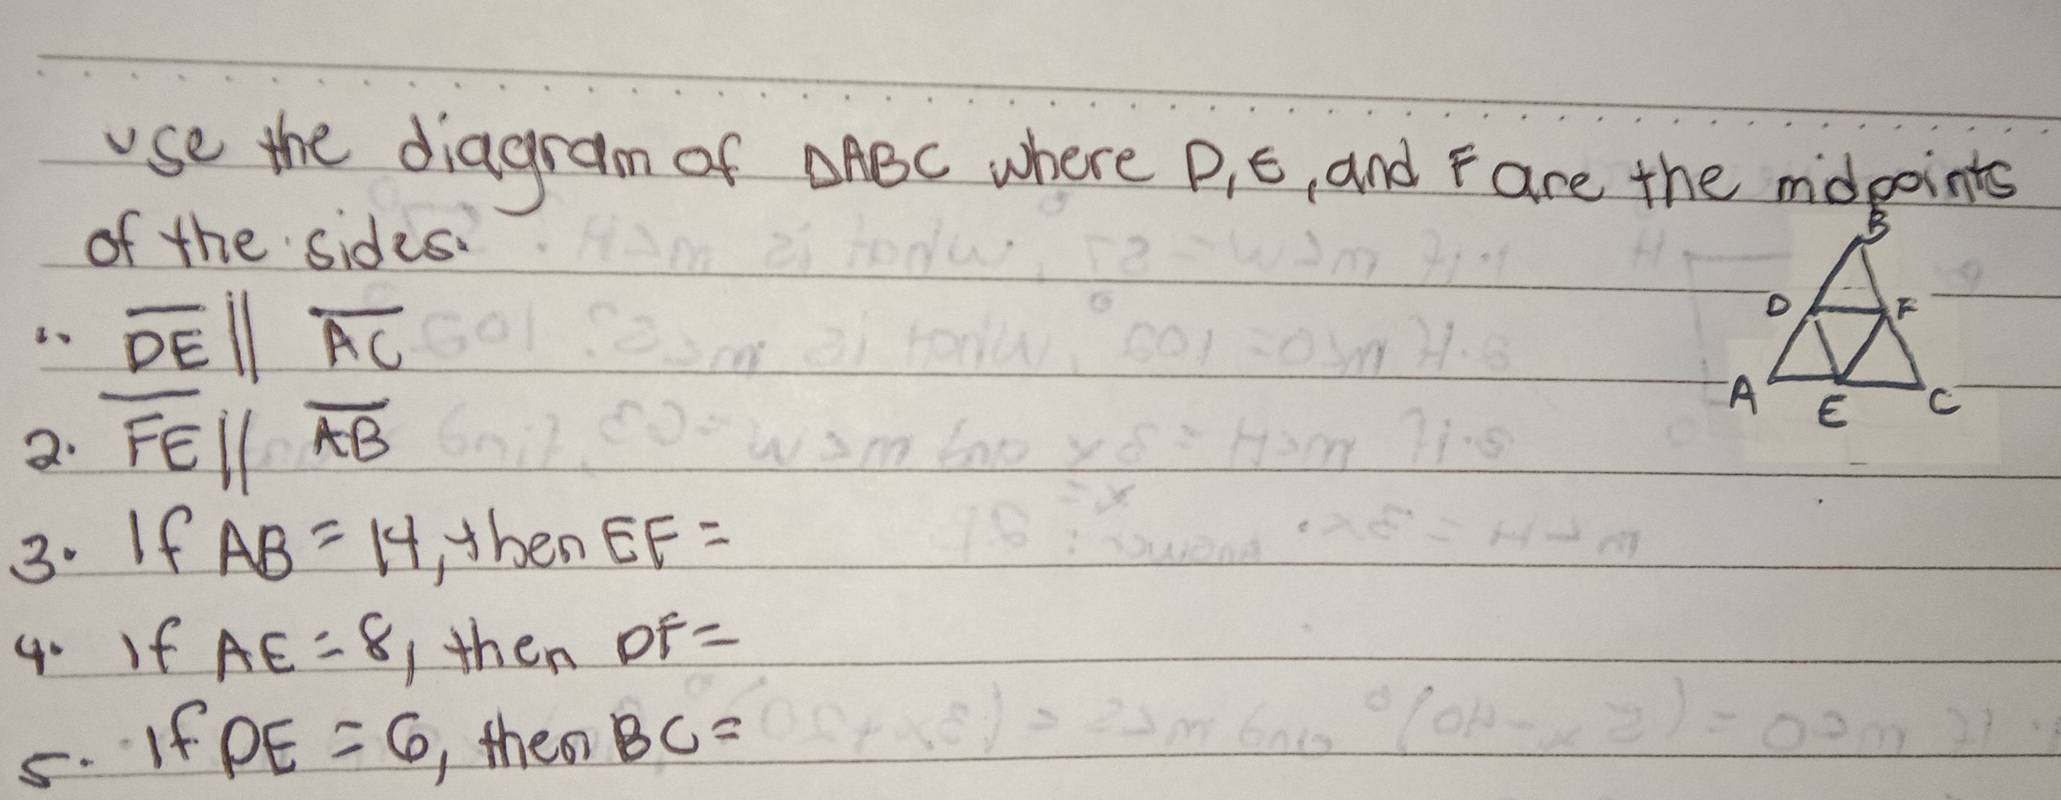 use the diagram of △ABC where D, E, and F are the midpoints
of the sides.
B
D
F
A
E
C
1. DE || AC
2. FE || AB
3. If AB = 14, then EF =
4. If AE = 8, then DF =
5. If DE = 6, then BC =